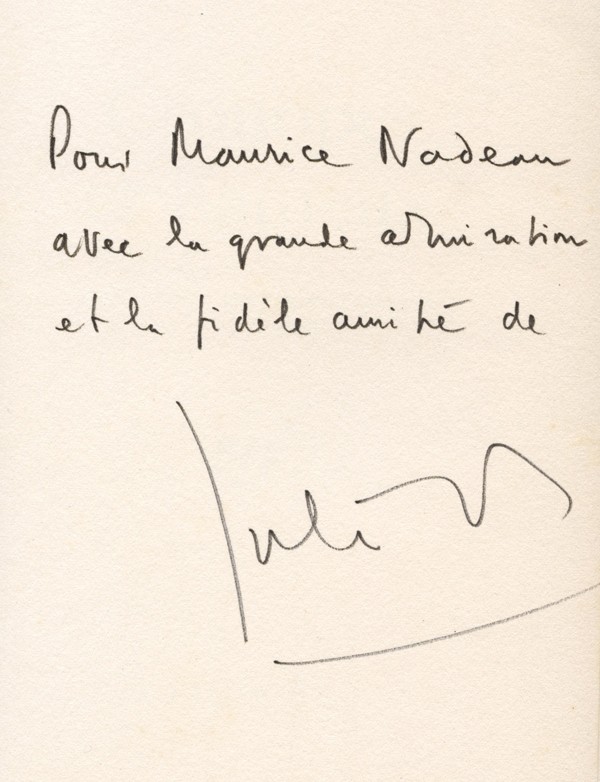 Pour Maurice Nadeau
avec la grande admiration
et la fidèle amitié de